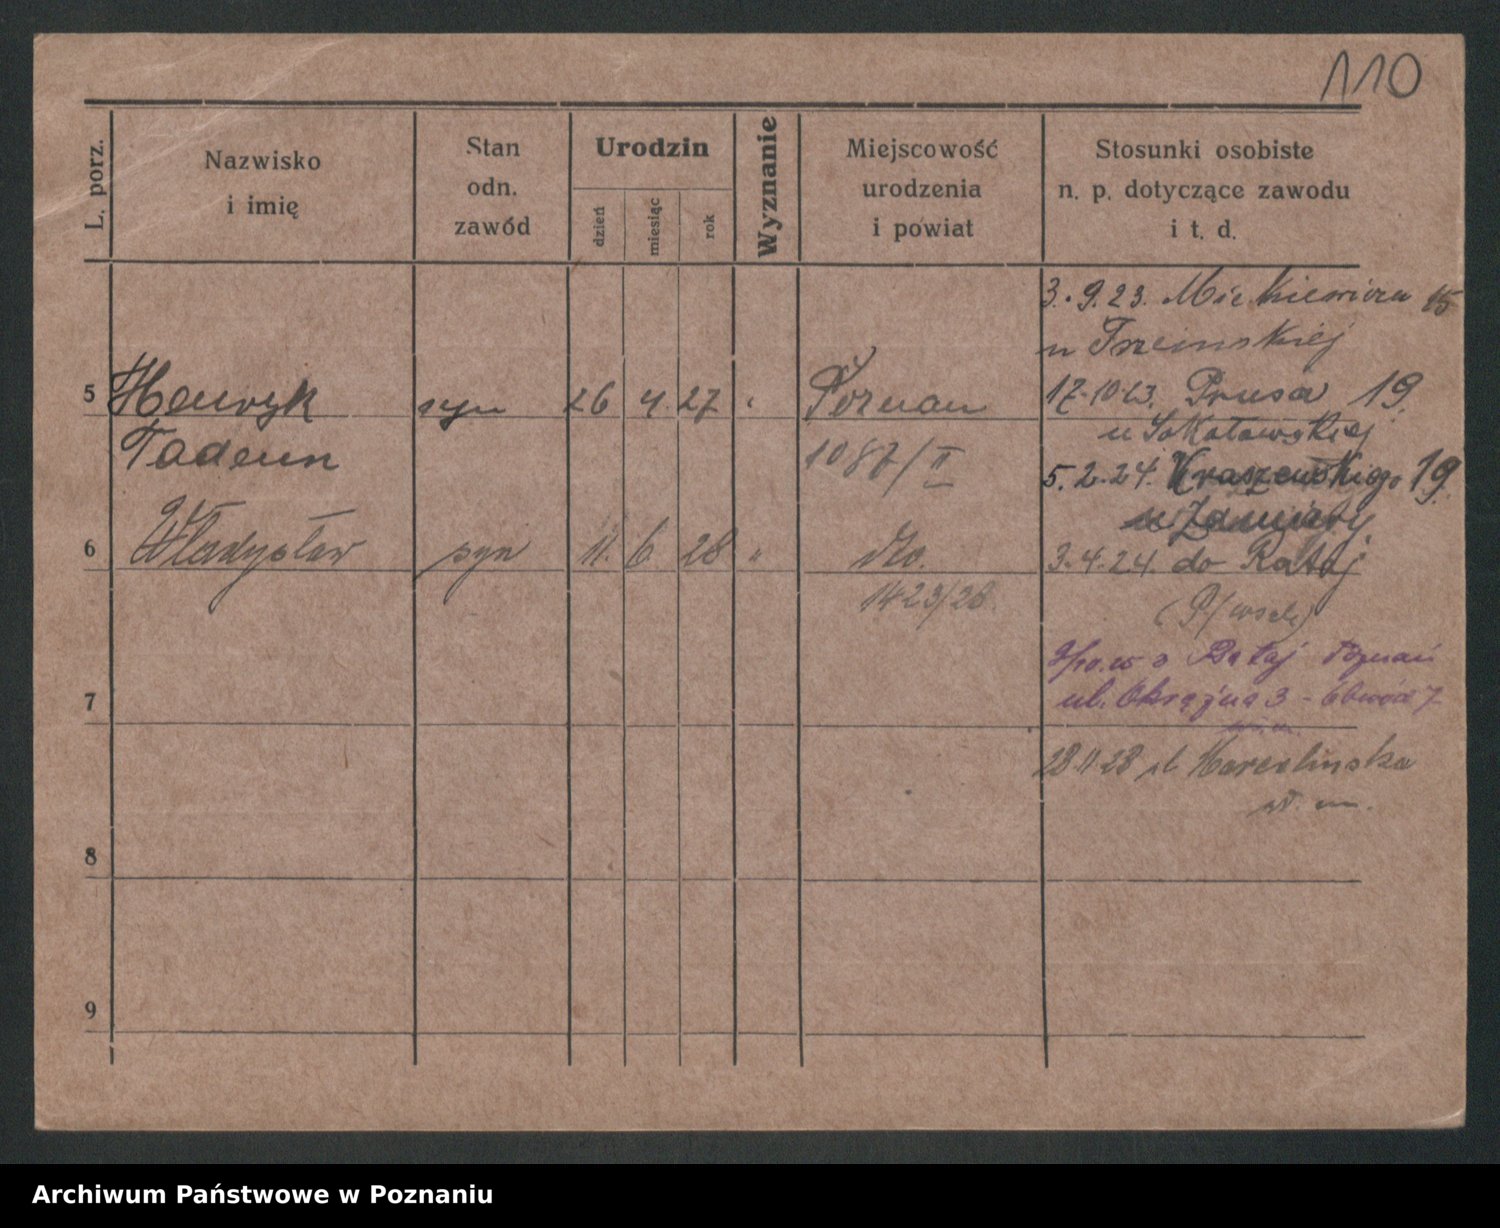 110
L. porz.
Nazwisko
i imię
Stan
odn.
zawód
Urodzin
dzień
miesiąc
rok
Wyznanie
Miejscowość
urodzenia
i powiat
Stosunki osobiste
n. p. dotyczące zawodu
i t. d.
3.9.23. Mickiewicza 15
u Trzcinskiej
5 Henryk syn 26 4. 27 " Poznan
17.10.23. Prusa 19.
u Sokołowskiej
Tadeusz
1087/II
5.2.24. Kraszewskiego 19.
6 Władysław syn 11. 6 28 " dto.
3.4.24. do Rataj
1423/28.
(P/wsch)
9/10.25 z Rataj Poznań
7
ul. Okrężna 3 - Obwód 7
28.11.28 ul. Marcelinska
8
9
Archiwum Państwowe w Poznaniu